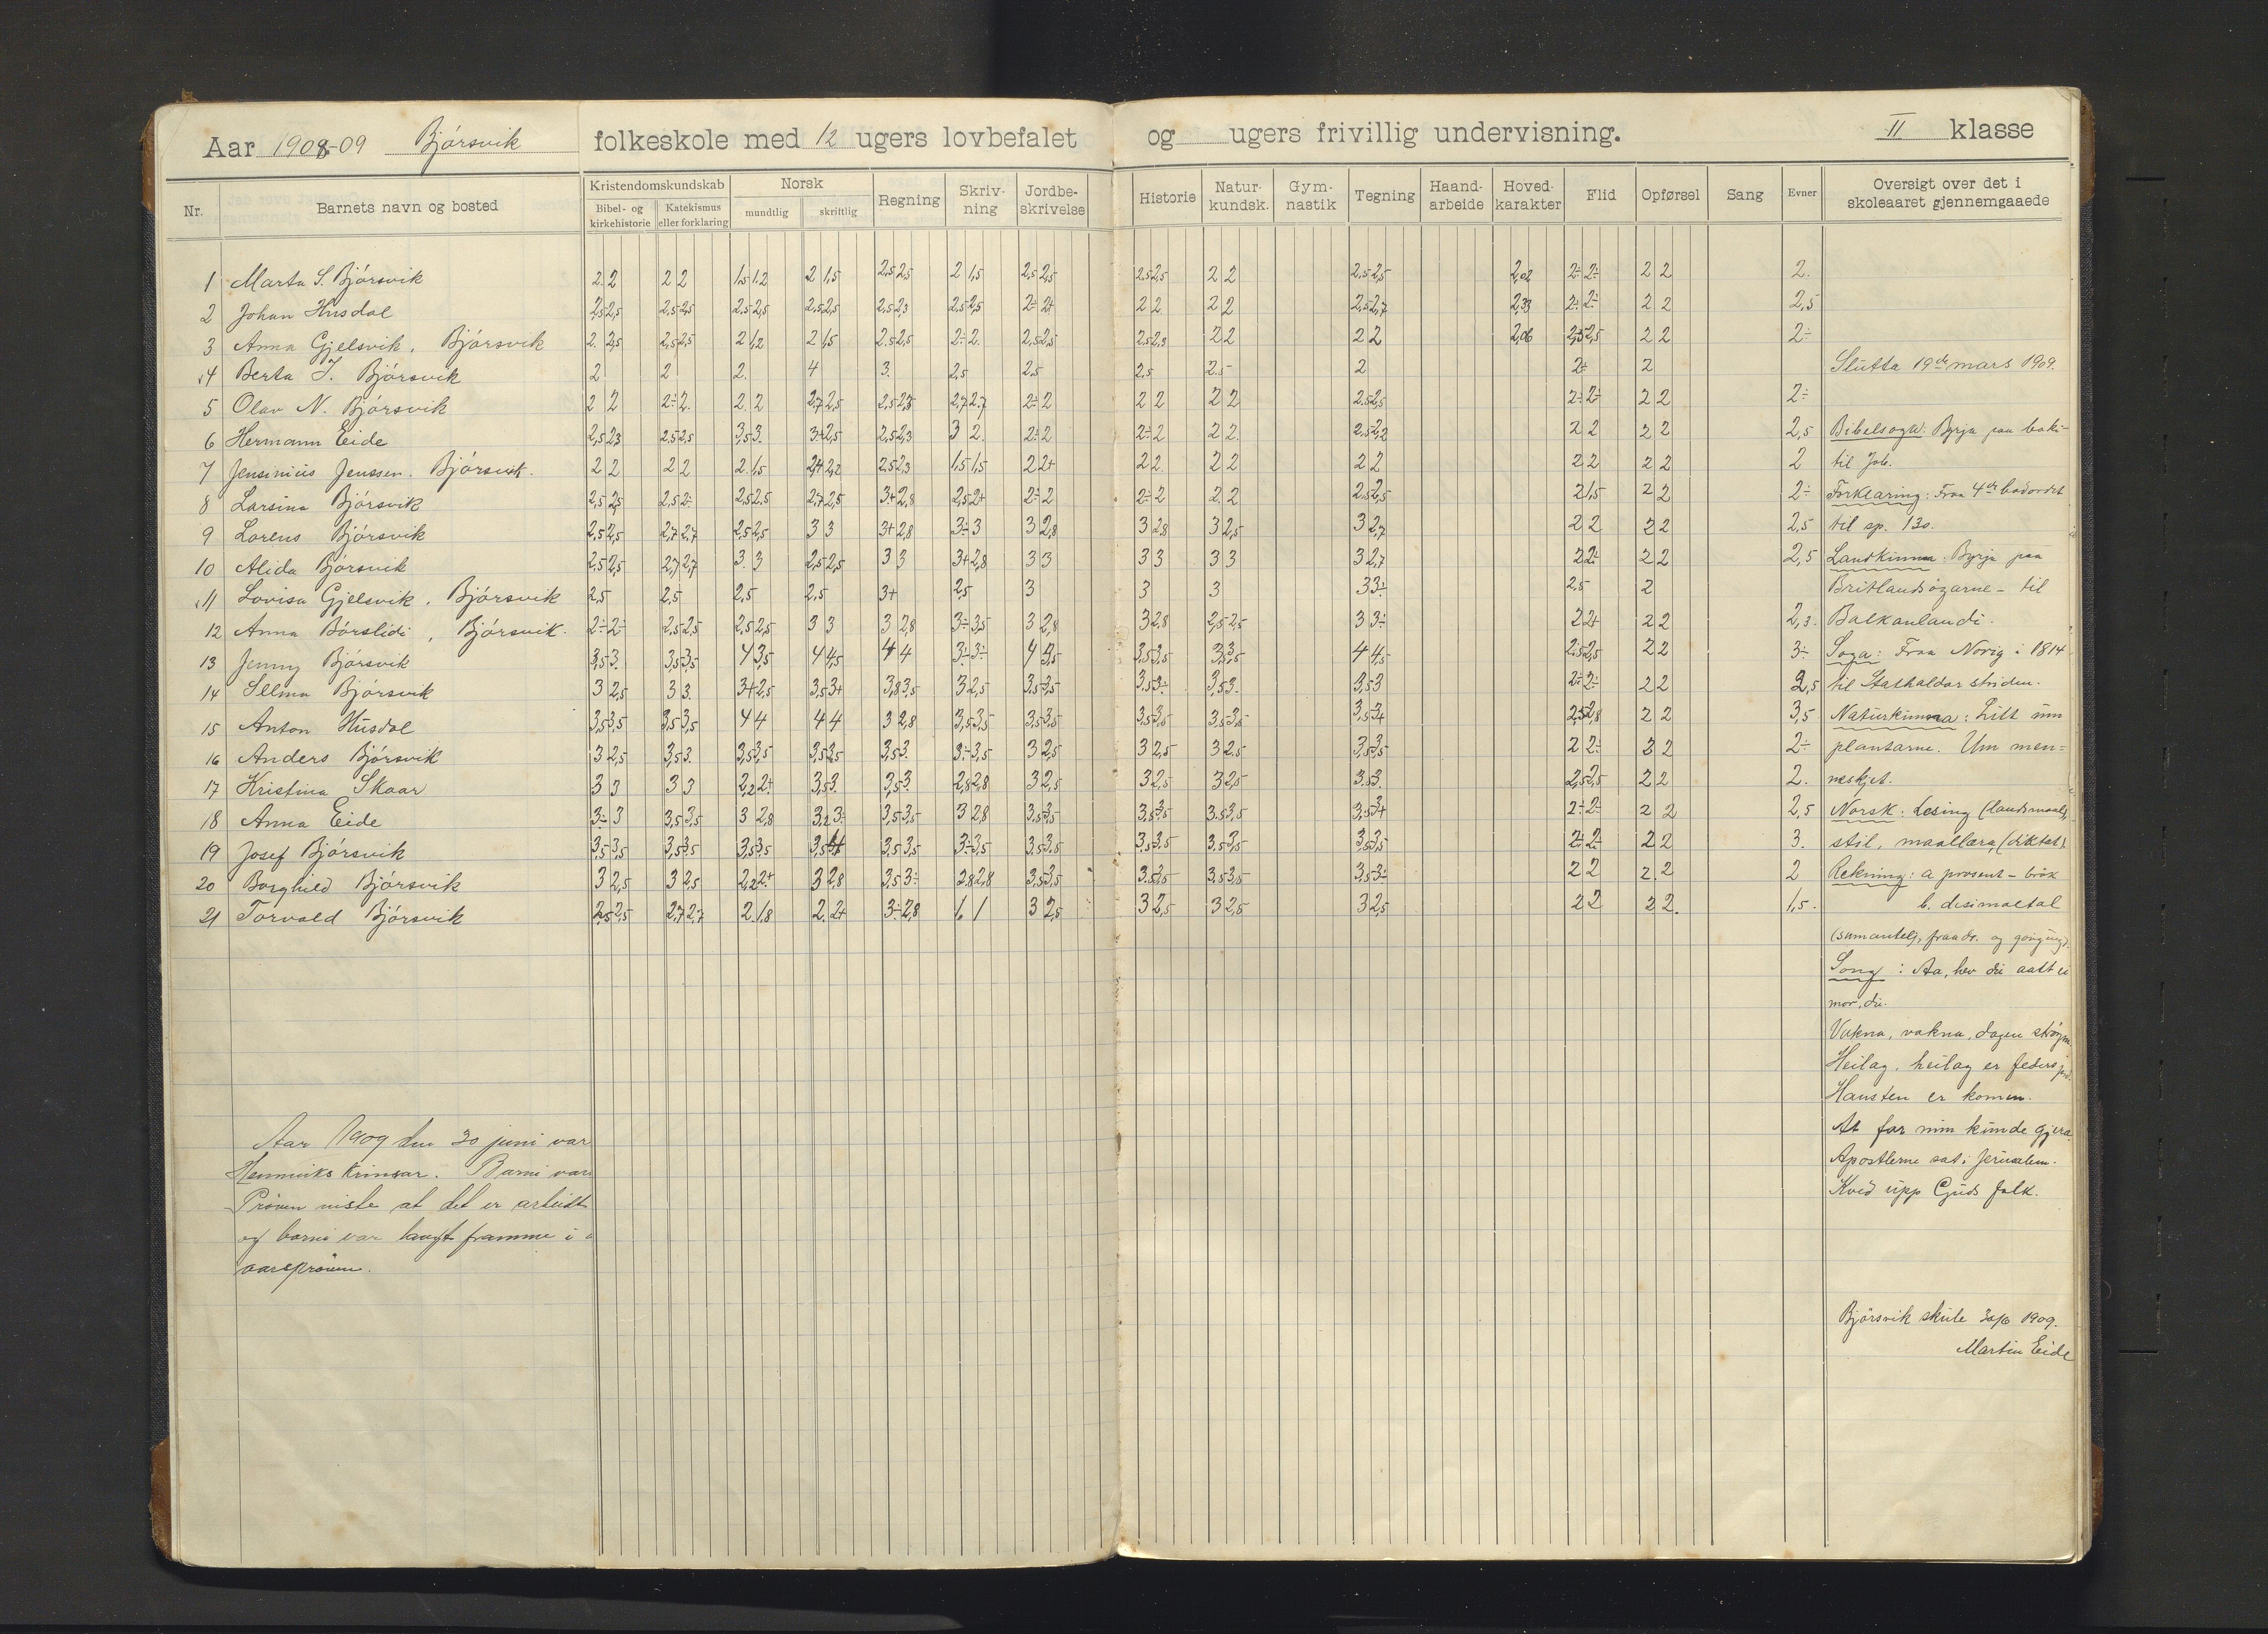 Aar 1908-09 Bjórsvik folkeskole med 12 ugers lovbefalet og ugers frivillig undervisning. II klasse
Nr. Barnets navn og bosted Kristendomskundskab Norsk Regning Skriv- Jordbe- Historie Natur- Gym- Tegning Haand- Hoved- Flid Opførsel Sang Evner Oversigt over det i
Bibel- og Katekismus mundtlig skriftlig ning skrivelse kundsk. nastik arbeide karakter skoleaaret gjennemgaaede
kirkehistorie eller forklaring
1 Marta S. Bjórsvik 2. 2 2 2 1,5 1.2 2 1,5 2,5 2,5 2 1,5 2,5 2,5 2,5 2,5 2 2 2,5 2,5 2,02 2÷ 2÷ 2 2 2.
2 Johan Husdal 2,5 2,5 2,5 2,5 2,5 2,5 2,5 2,5 2,5 2,3 2,5 2,5 2÷ 2+ 2 2 2 2 2,5 2,7 2,33 2÷ 2÷ 2 2 2,5
3 Anna Gjelsvik, Bjórsvik 2. 2,5 2,5 2,5 2 1,2 2 1,5 2.5 2,5 2÷ 2. 2,5 2,5 2,5 2,3 2 2 2 2 2,06 2,5 2,5 2 2 2÷
4 Berta J. Bjórsvik 2 2 2. 4 3. 2,5 2,5 2,5 2.5 2 2+ 2 Slutta 19de mars 1909.
5 Olav N. Bjórsvik 2 2 2÷ 2. 2. 2 2,7 2,5 2,5 2,3 2,7 2,7 2÷ 2 2 2 2 2 2,5 2,5 2÷ 2÷ 2 2 2÷
6 Hermann Eide 2,5 2,3 2,5 2,5 3,5 3. 3+ 2,5 2,5 2,3 3 2. 2÷ 2 2÷ 2 2 2. 2,5 2,2 2 2 2 2 2,5 Bibelsoga: Byrja paa boki
7 Jensinius Jenssen. Bjórsvik. 2 2 2 2 2. 1,5 2,4 2,2 2,5 2,3 1,5 1,5 2 2+ 2 2. 2 2 2 2 2 2 2 2 2 til Job.
8 Larsina Bjórsvik 2,5 2,5 2,5 2÷ 2,5 2,5 2,7 2,5 3+ 2,8 2,5 2+ 2÷ 2 2÷ 2 2. 2 2,5 2,5 2 1,5 2 2 2÷ Forklaring: Fraa 4de bodordet
9 Lorens Bjórsvik 2,5 2,5 2,7 2,7 2,5 2,5 3 3 3+ 2,8 3÷ 3 3 2,8 3 2,8 3 2,5 3 2,7 2 2 2 2 2,5 til sp. 130.
10 Alida Bjórsvik 2,5 2,5 2,7 2,7 3. 3 2,5 2,5 3 3 3+ 2,8 3 3 3 3 3 3 3 2,7 2 2÷ 2 2 2,5 Landkunna: Byrja paa
11 Lovisa Gjelsvik, Bjórsvik 2,5 2,5 2,5 2,5 3+ 2,5 3 3 3 3 3÷ 2,5 2 Britlandsöyarne - til
12 Anna Bórslidi, Bjórsvik. 2÷ 2÷ 2,5 2,5 2,5 2,5 3 3 3 2,8 3÷ 3,5 3 2,8 3 2,8 2,5 2,5 3 3÷ 2 2+ 2 2 2,3. Balkanlandi.
13 Jenny Bjórsvik 3,5 3. 3,5 3,5 4 3,5 4 4,5 4 4 3÷ 3÷ 4 3,5 3,5 3,5 3,5 3,5 4 4,5 2,5 2,5 2 2 3÷ Soga: Fraa Norig i 1814
14 Selma Bjórsvik 3 2,5 3 3. 3+ 2,5 3,5 3+ 3,8 3,5 3 2,5 3,5 3,5 3,5 3÷ 3,5 3. 3,5 3 2÷ 2÷ 2 2 2,5 til Stathaldar striden.
15 Anton Husdal 3,5 3,5 3,5 3,5 4 4 4 4 3 2,8 3,5 3,5 3,5 3,5 3,5 3,5 3,5 3,5 3,5 3+ 2,5 2,8 2 2 3,5 Naturkunna: Litt um
16 Anders Bjórsvik 3 2,5 3,5 3. 3,5 3,5 3,5 3,5 3,5 3. 3÷ 3,5 3 2,5 3 2,5 3 2.5 3,5 3,5 2 2÷ 2 2 2÷ plantarne. Um men=
17 Kristina Skaar 3 3 3 3 2,2 2+ 3,5 3. 3,5 3. 2,8 2,8 3 2,5 3 2,5 3 2,5 3,5 3. 2,5 2,5 2 2 2. neskjet.
18 Anna Eide 3÷ 3 3,5 3,5 3 2,8 3,2 3÷ 3,5 3,5 3 2,8 3,5 3,5 3,5 3,5 3.5 3,5 3,5 3+ 2÷ 2÷ 2 2 2,5 Norsk: Lesing (landsmaal),
19 Josef Bjórsvik 3,5 3,5 3,5 3,5 3,5 3,5 3,5 3,5 3,5 3÷ 3,5 3,5 3,5 3,5 3,5 3,5 3,5 3,5 3,5 2÷ 2÷ 2 2 3. stil, maallæra, (diktat).
20 Borghild Bjórsvik 3 2,5 3 2,5 2,2 2+ 3 2,8 3,5 3÷ 2,8 2,8 3,5 3,5 3.5 3,5 3.5 3,5 3,5 3÷ 2 2 2. 2 2 Rekning: a prosent - brök
21 Torvald Bjórsvik 2,5 2,5 2,7 2,7 2. 1,8 2. 2+ 3÷ 2,8 1. 1 3 2,5 3 2,5 3 2,5 3 2,5 2 2 2 2. 1,5. b. desimaltal
fraadr. og
Song: Aa, hev du aatt ei
mor, du.
Vakna, vakna, dagen
Heilag, heilag er
Hausten er komen.
At far min kunde gjera
Apostlerne sat i Jerusalem.
Kved upp Guds folk.
Aar 1909 den 30 juni var
Barni var
Pröven viste at det er arbeidt
og borni var langt framme i
aarspröven.
Bjórsvik skule 30/6 1909.
Martin Eide